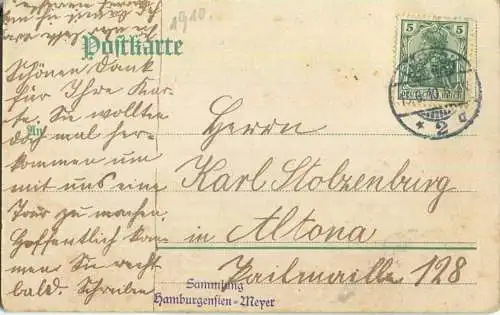 1910.
Postkarte
Schönen Dank
für Ihre Kar-
te. Sie wollten
doch mal her-
kommen um
mit uns eine
Tour zu machen.
Hoffentlich kom-
men Sie recht
bald. Schreiben
An
5
5
DEUTSCHES REICH
10
* 2 q
Herrn
Karl Stolzenburg
in Altona
Pailmaille 128
Sammlung
Hamburgensien-Meyer